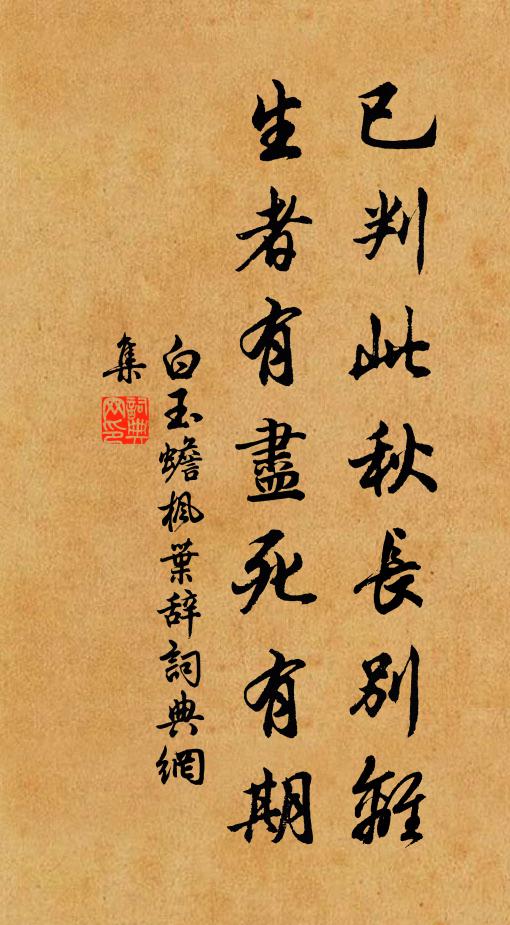 已判此秋長別離
生者有盡死有期
白玉蟾楓葉辞詞典網
集
詞典網印